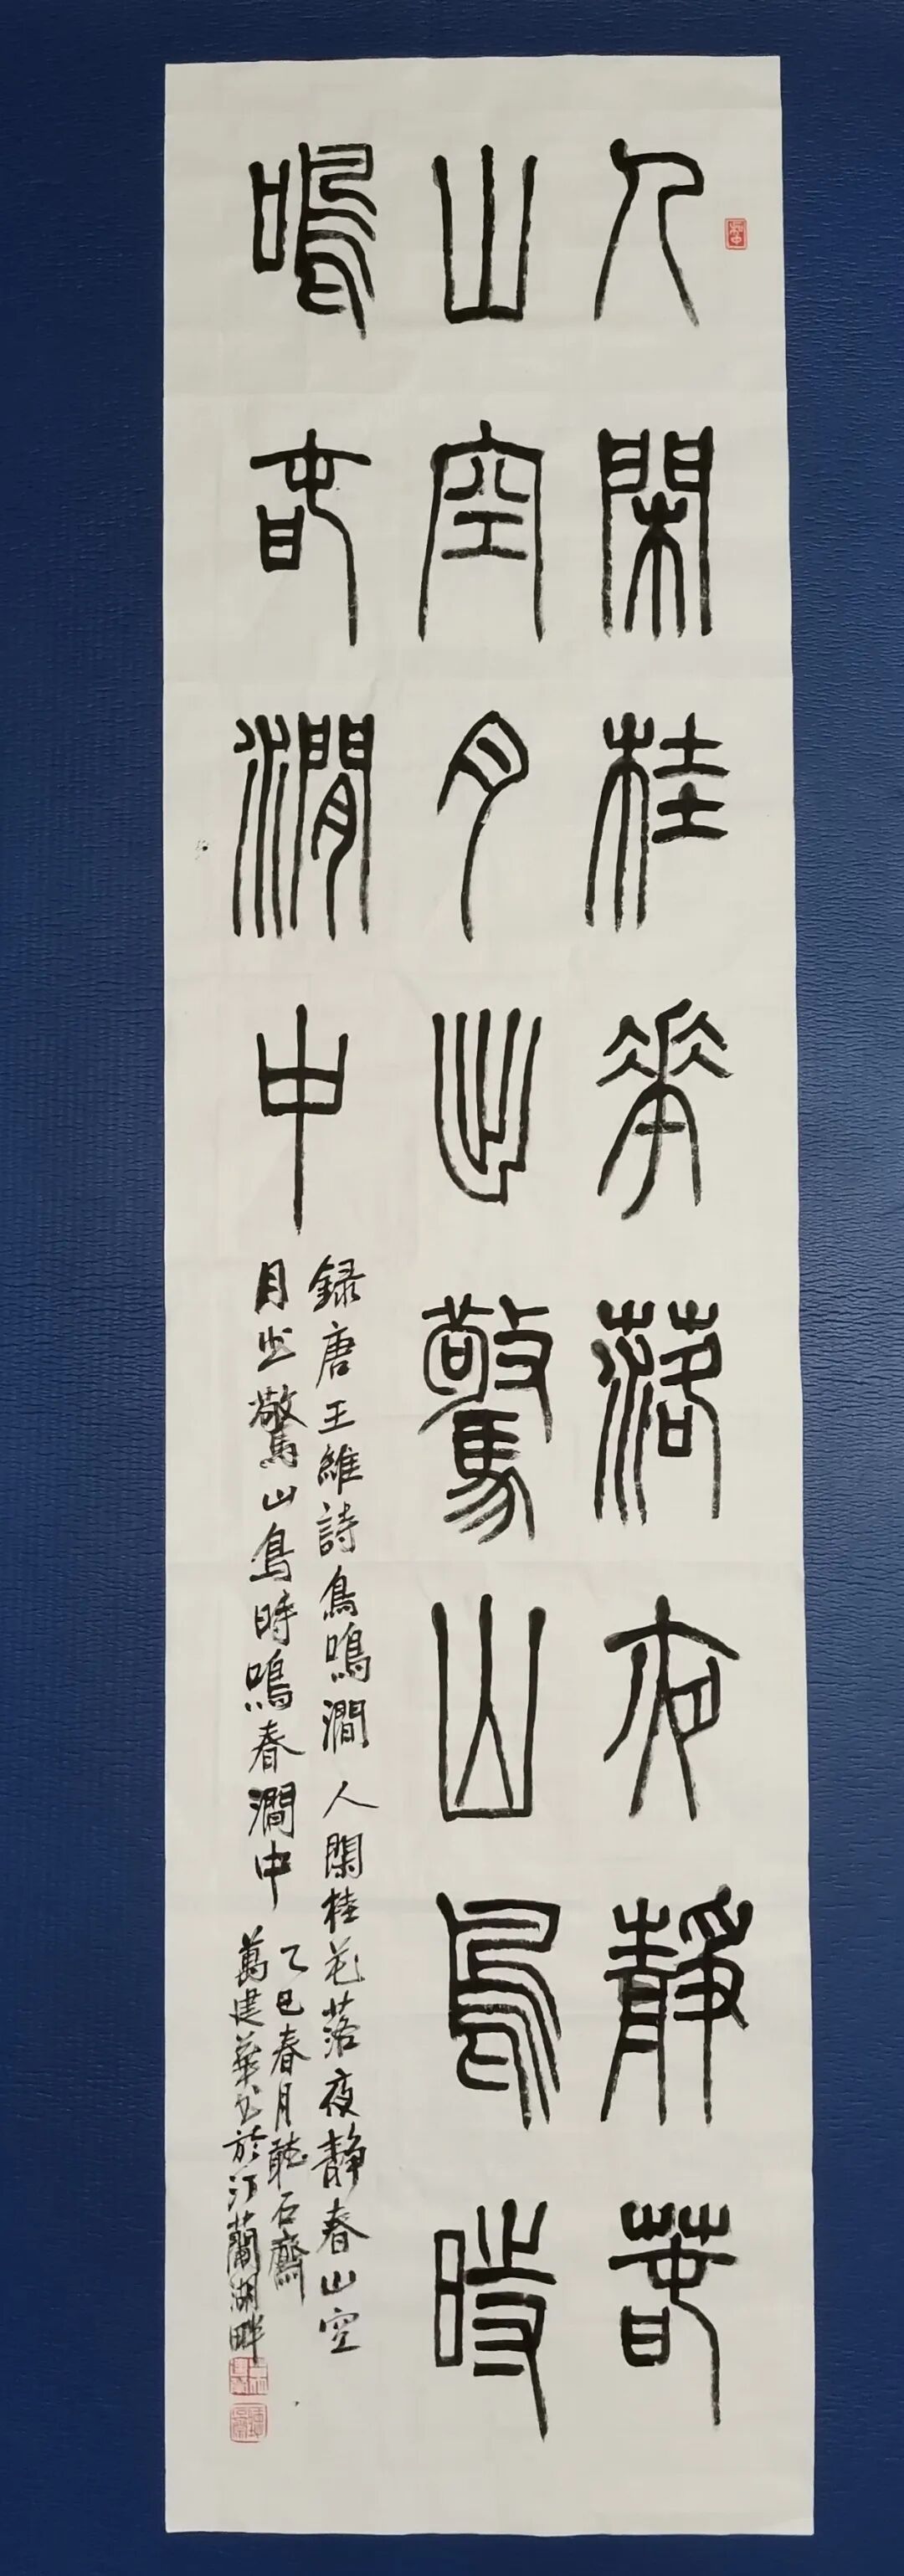 人閑桂華落夜靜春
山空月出驚山鳥時
鳴春澗中
録唐王維詩鳥鳴澗 人閑桂花落夜靜春山空
月出驚山鳥時鳴春澗中
乙巳春月聽石齋
萬建華書於汀蘭湖畔